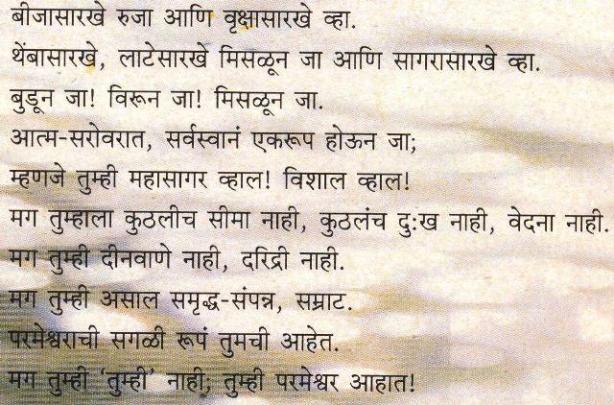 बीजासारखे रुजा आणि वृक्षासारखे व्हा.
थेंबासारखे, लाटेसारखे मिसळून जा आणि सागरासारखे व्हा.
बुडून जा! विरून जा! मिसळून जा.
आत्म-सरोवरात, सर्वस्वानं एकरूप होऊन जा;
म्हणजे तुम्ही महासागर व्हाल! विशाल व्हाल!
मग तुम्हाला कुठलीच सीमा नाही, कुठलंच दुःख नाही, वेदना नाही.
मग तुम्ही दीनवाणे नाही, दरिद्री नाही.
मग तुम्ही असाल समृद्ध-संपन्न, सम्राट.
परमेश्वराची सगळी रूपं तुमची आहेत.
मग तुम्ही ‘तुम्ही’ नाही; तुम्ही परमेश्वर आहात!